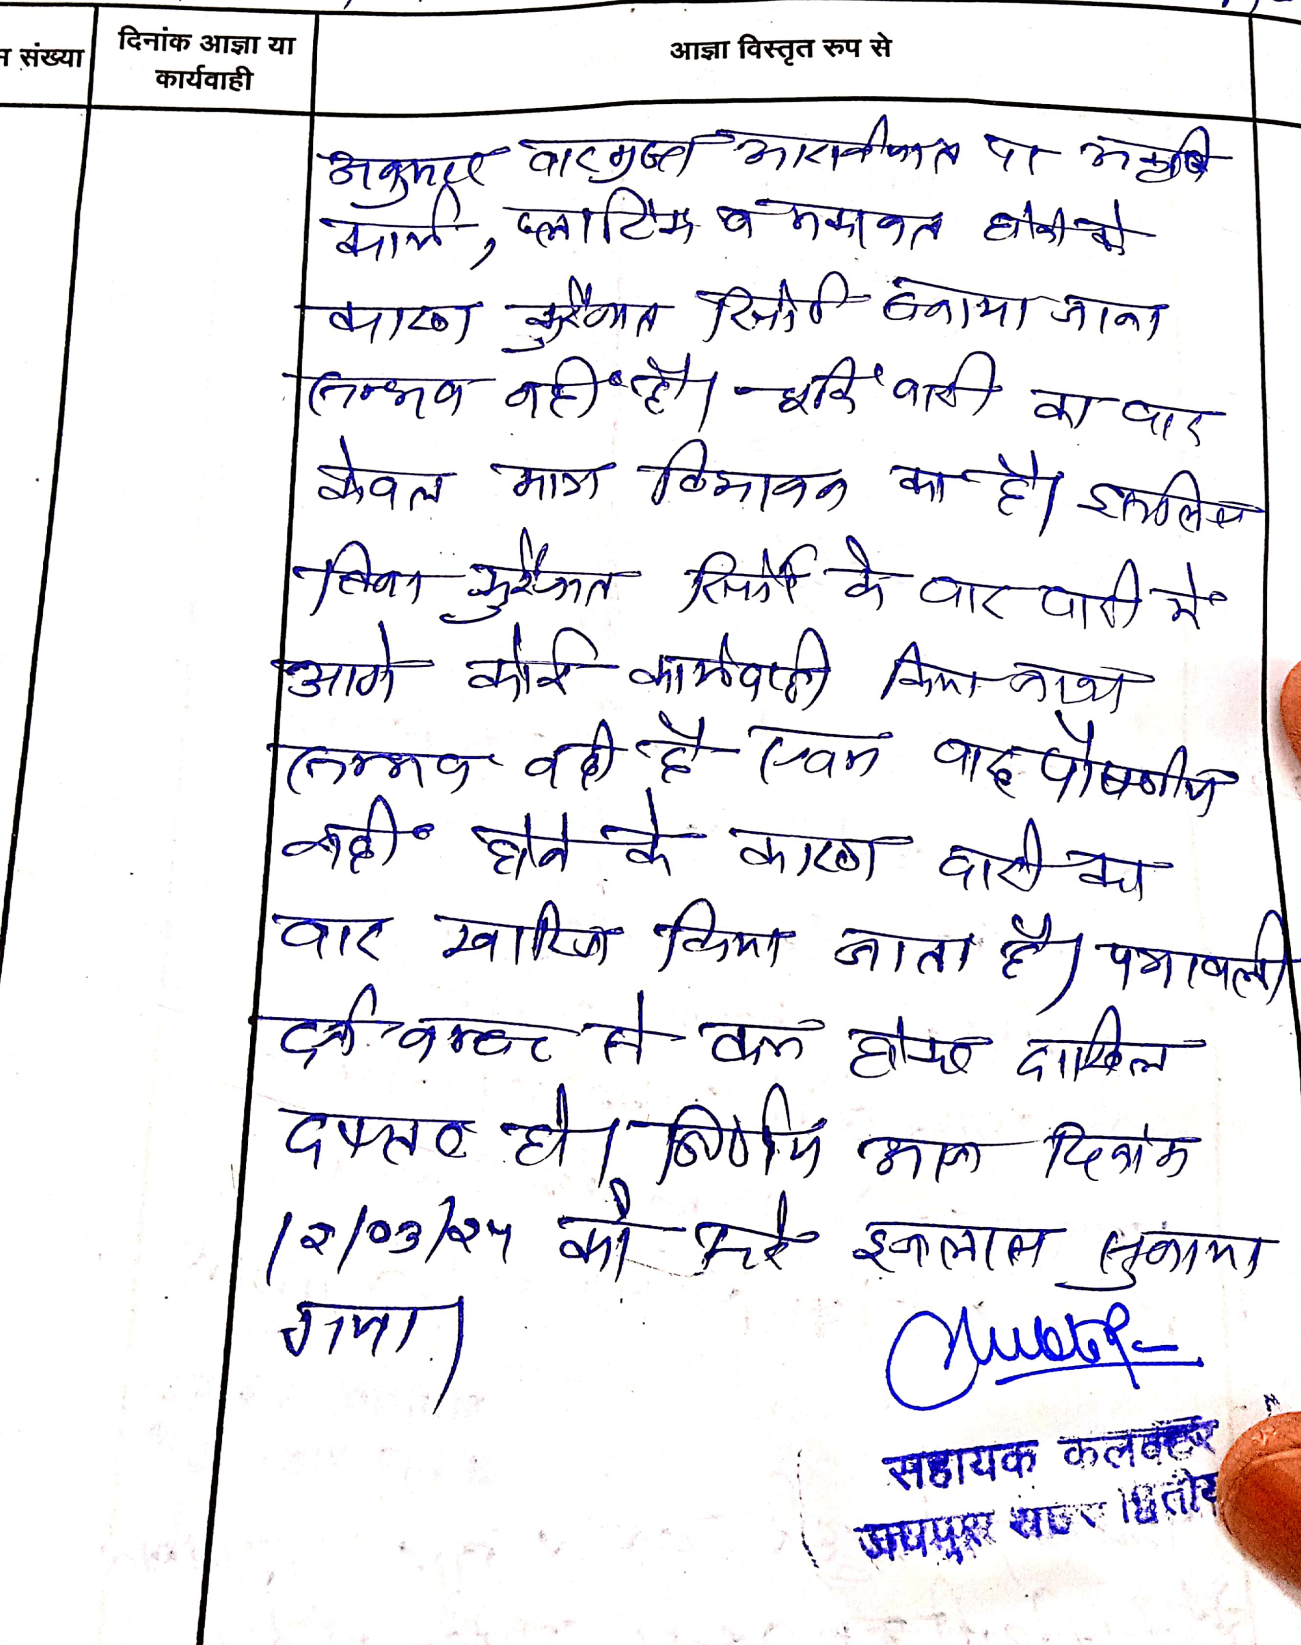 संख्या
दिनांक आज्ञा या
कार्यवाही
आज्ञा विस्तृत रुप से
अनुसार वादग्रस्त आराजीयात पर अकृषि
कार्य, प्लाटिंग व मकानात होने के
कारण कुर्रेजात रिपोर्ट बनाया जाना
सम्भव नहीं है। चूंकि वादी का वाद
केवल मात्र विभाजन का है। इसलिए
बिना कुर्रेजात रिपोर्ट के वाद वादी में
आगे कोई कार्यवाही किया जाना
सम्भव नही है एवम वाद पोषणीय
नहीं होने के कारण वादी का
वाद खारिज किया जाता है। पत्रावली
दर्ज नम्बर से कम होकर दाखिल
दफ्तर हो। निर्णय आज दिनांक
12/03/25 को सरे इजलास सुनाया
गया।
सहायक कलक्टर
जयपुर शहर द्वितीय